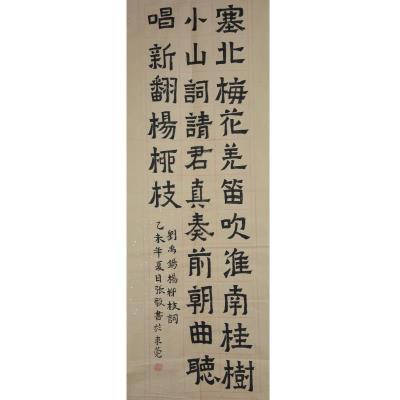 塞北梅花羌笛吹淮南桂樹
小山詞請君莫奏前朝曲聽
唱新翻楊柳枝
劉禹錫楊柳枝詞
乙未年夏日張書於東莞